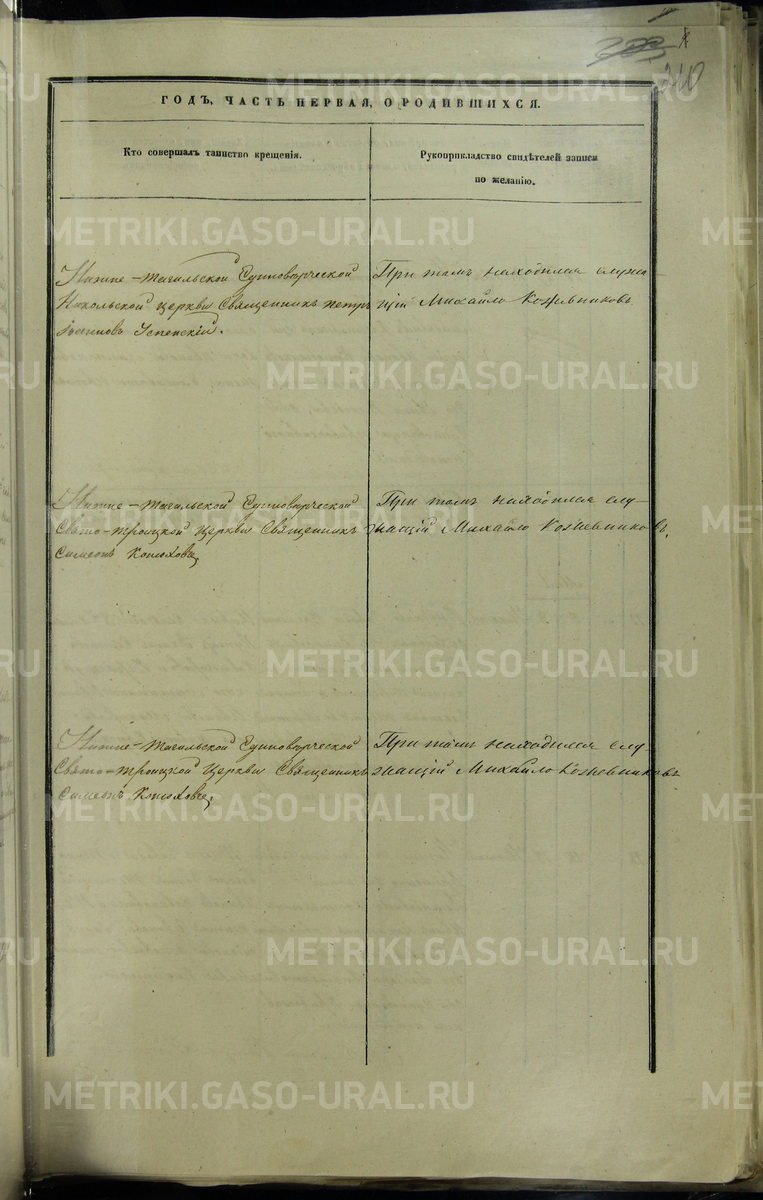 210
ГОДЪ, ЧАСТЬ ПЕРВАЯ, О РОДИВШИХСЯ.
Кто совершалъ таинство крещенія.
Рукоприкладство свидѣтелей записи
по желанію.
Нижне-Тагильской Единовѣрческой
Никольской Церкви Священникъ Петръ
Успенскій.
При томъ находился служа-
щій Михайло Кожевниковъ.
Нижне-Тагильской Единовѣрческой
Свято-Троицкой Церкви Священникъ
Симеонъ Конюховъ,
При томъ находился слу-
жащій Михайло Кожевниковъ.
Нижне-Тагильской Единовѣрческой
Свято-Троицкой Церкви Священникъ
Симеонъ Конюховъ,
При томъ находился слу-
жащій Михайло Кожевниковъ
METRIKI.GASO-URAL.RU